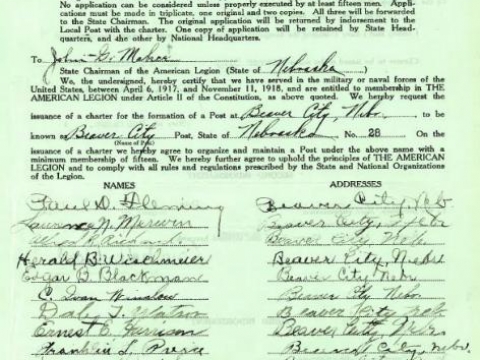 No application can be considered unless properly executed by at least fifteen men. Appli-
cations must be made in triplicate, one original and two copies. All three will be forwarded
to the State Chairman. The original application will be returned by indorsement to the
Local Post with the charter. One copy of application will be retained by State Head-
quarters, and the other by National Headquarters.
To John G. Maher
State Chairman of the American Legion (State of Nebraska)
We, the undersigned, hereby certify that we have served in the military or naval forces of the
United States, between April 6, 1917, and November 11, 1918, and are entitled to membership in
THE AMERICAN LEGION under Article II of the Constitution, as above quoted. We hereby request
the issuance of a charter for the formation of a Post at Beaver City, Nebr. to be
known Beaver City Post, State of Nebraska No. 28 On the
(Name of Post)
issuance of this charter we hereby agree to organize and maintain a Post under the above name with a
minimum membership of fifteen. We hereby further agree to uphold the principles of THE AMERICAN
LEGION and to comply with all rules and regulations prescribed by the State and National Organizations
of the Legion.
NAMES ADDRESSES
Paul D. Fleming Beaver City, Neb
Laurence N. Merwin Beaver City, Nebr
Beaver City Neb.
Herald B. Wischmeier Beaver City, Nebr
Edgar B. Blackman Beaver City Nebr
C. Ivan Winslow Beaver City Nebr.
Daley T. Watson Beaver City Neb
Ernest E. Garrison Beaver City, Nebr
Franklin L. Pierce Beaver City, Nebr.